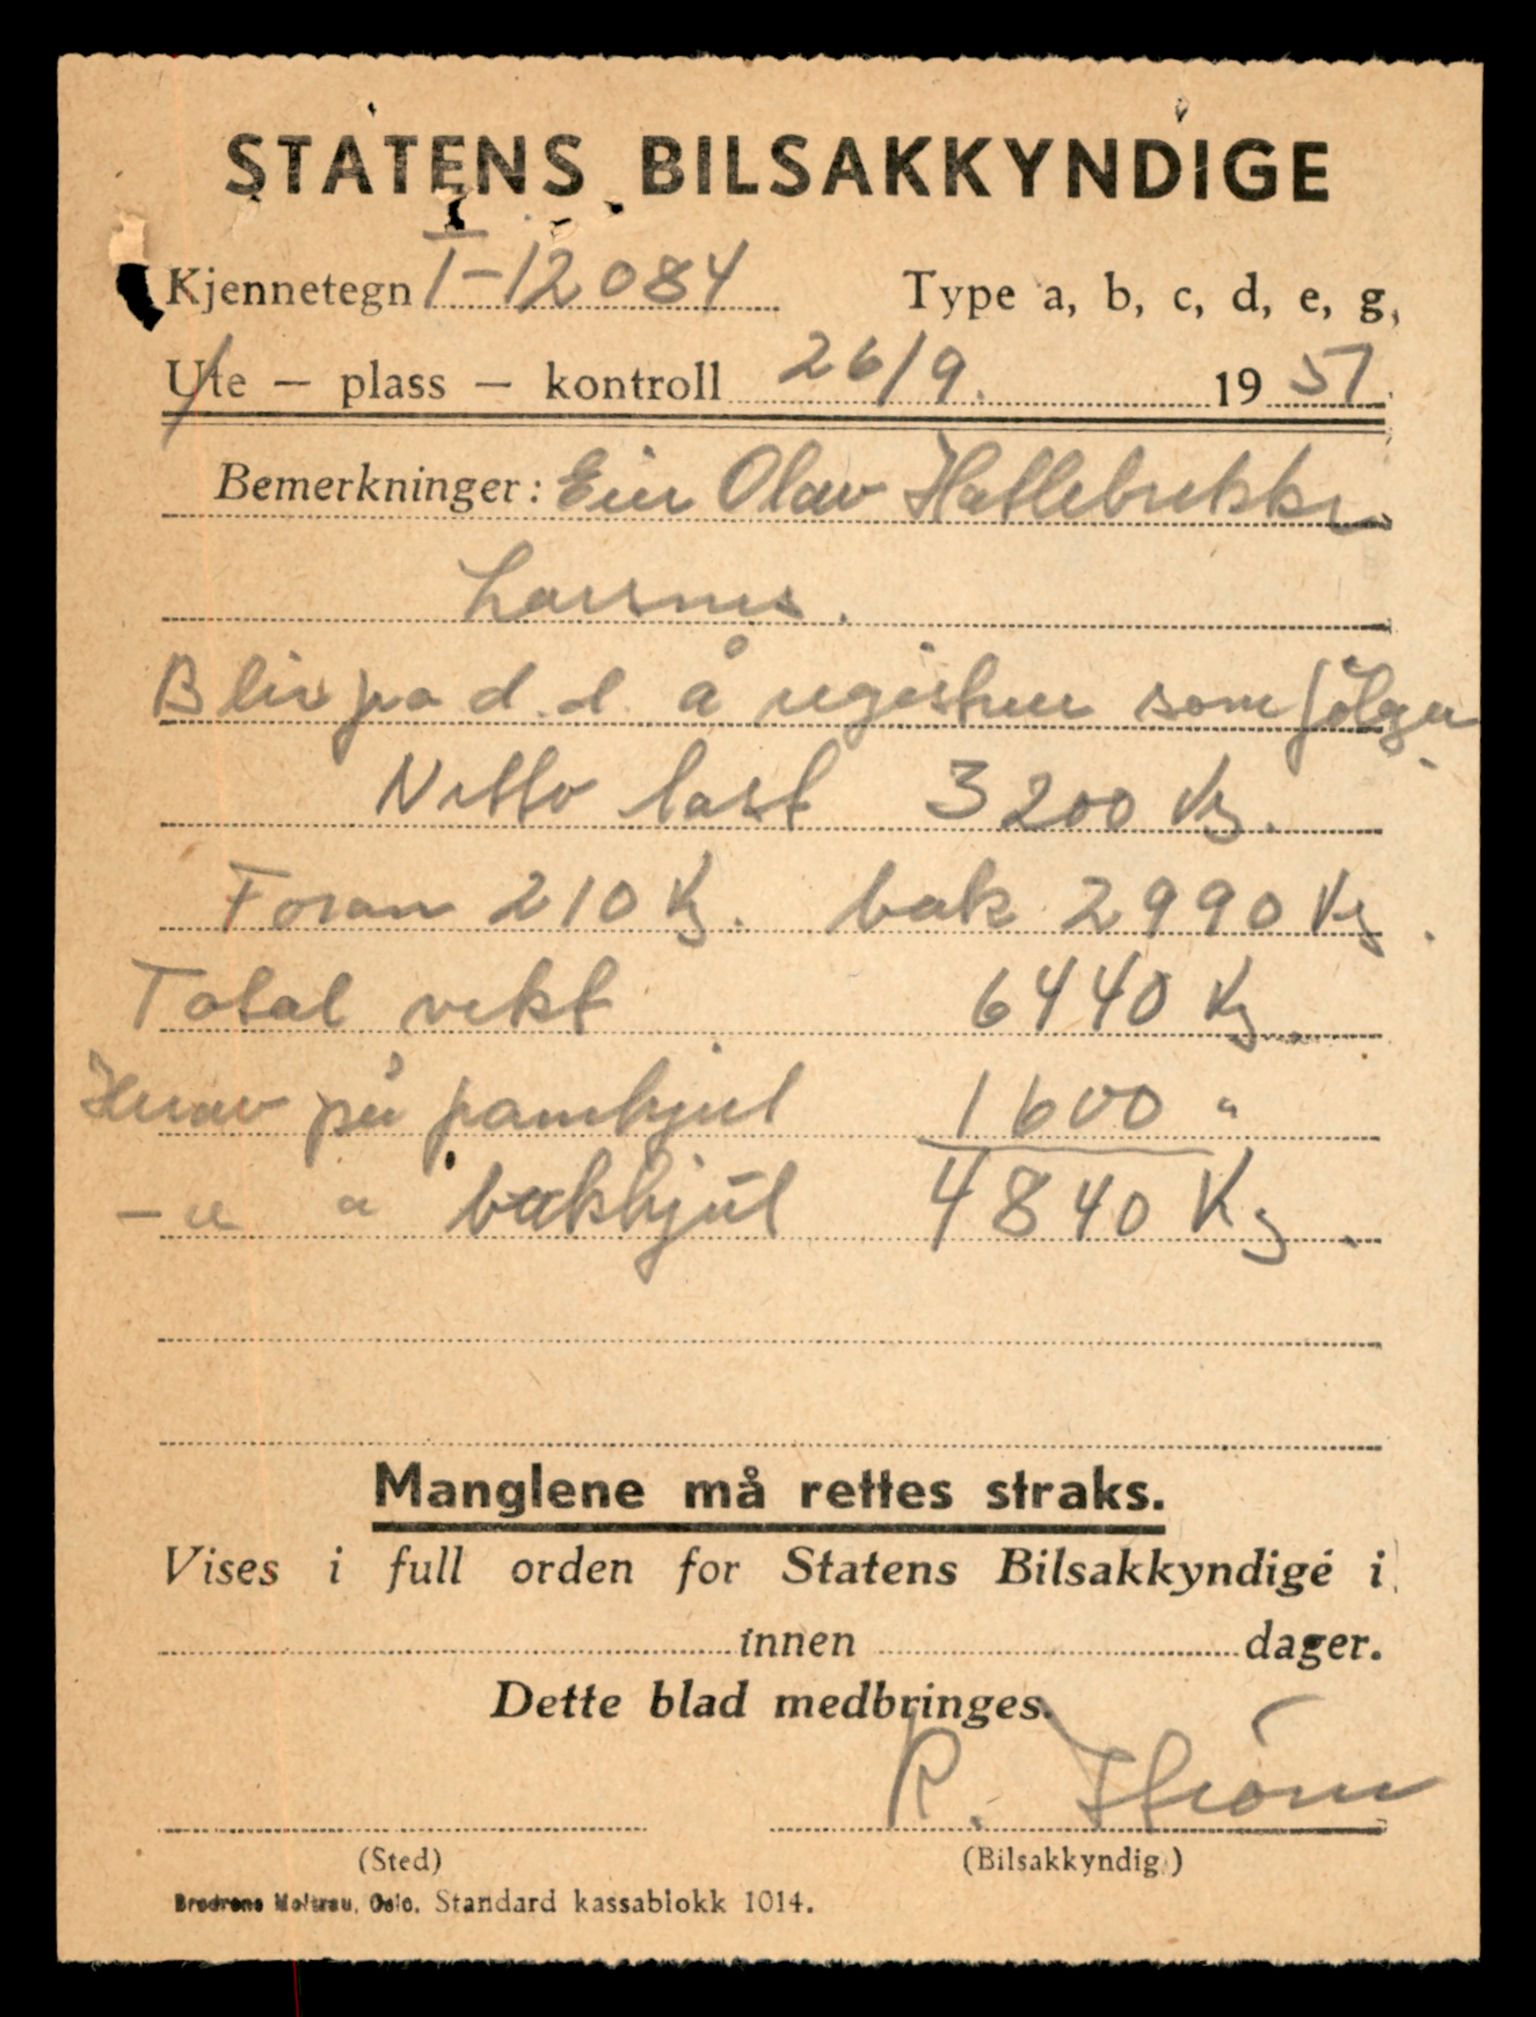 STATENS BILSAKKYNDIGE
Kjennetegn T-12084 Type a, b, c, d, e, g,
Ute — plass — kontroll 26/9. 19 51.
Bemerkninger: Eier Olav Hatlebrekke
Larsnes.
Blir på d.d. å registrere som følger
Netto last 3200 Kg.
Foran 210 Kg. bak 2990 Kg.
Total vekt 6440 Kg.
Herav på framhjul 1600 "
-"- " bakhjul 4840 Kg.
Manglene må rettes straks.
Vises i full orden for Statens Bilsakkyndige i
innen dager.
Dette blad medbringes.
R. Strøm
(Sted) (Bilsakkyndig.)
Oslo. Standard kassablokk 1014.